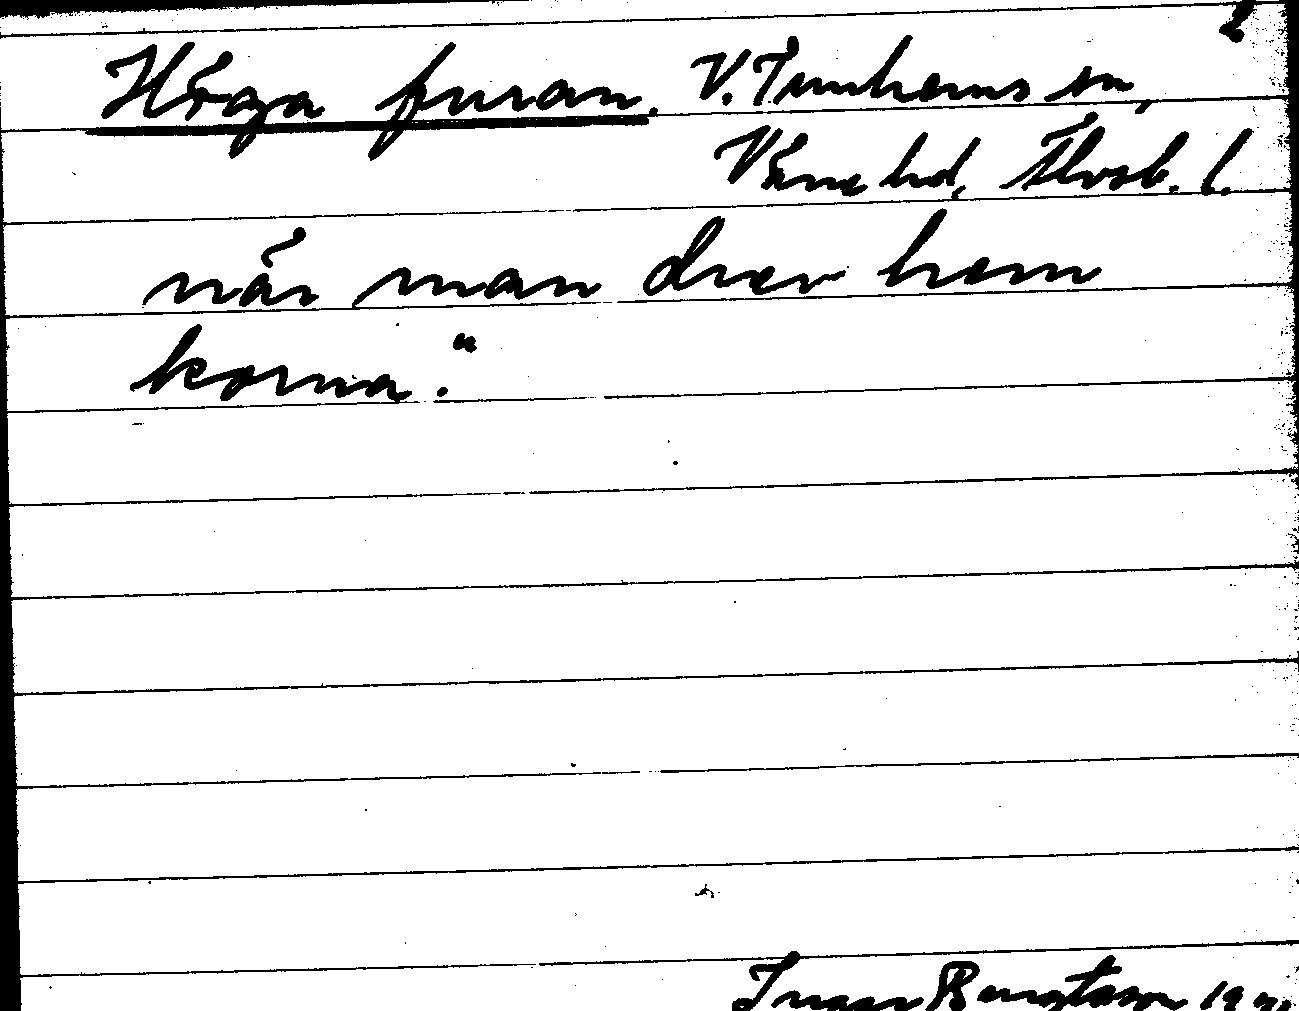 2
Höga furan. V. Tunhems sn,
Väne hd, Älvsb. l.
när man drev hem
korna."
Inger Bengtsson